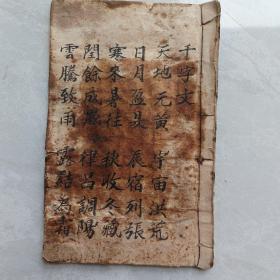 千字文
天地元黄 宇宙洪荒
日月盈昃 辰宿列張
寒來暑往 秋收冬藏
閏餘成歳 律呂調陽
雲騰致雨 露結為霜